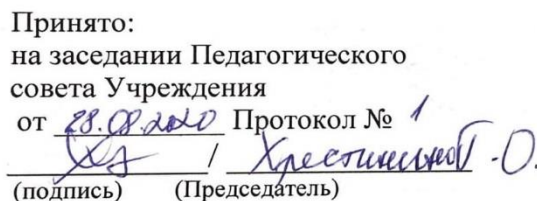 Принято:
на заседании Педагогического
совета Учреждения
от 28.08.2020 Протокол № 1
/
(подпись) (Председатель)